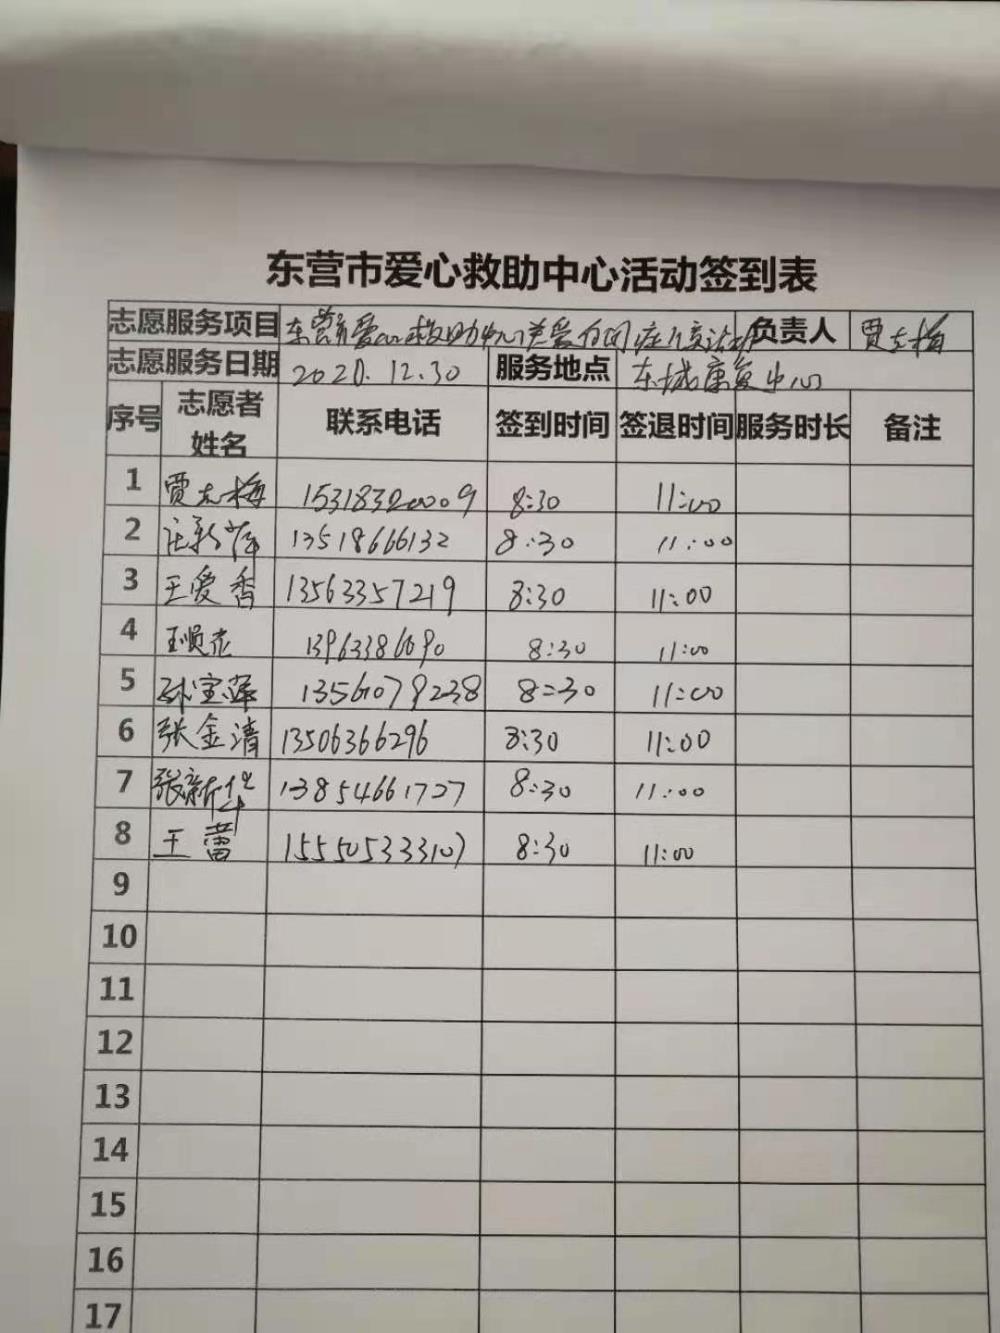 东营市爱心救助中心活动签到表
志愿服务项目 东营市爱心救助中心关爱自闭症儿童活动 负责人 贾志梅
志愿服务日期 2020.12.30 服务地点 东城康复中心
序号 志愿者姓名 联系电话 签到时间 签退时间 服务时长 备注
1 贾志梅 15318320009 8:30 11:00
2 13518666132 8:30 11:00
3 王爱香 13563357219 8:30 11:00
4 13963386090 8:30 11:00
5 13561079238 8:30 11:00
6 张金清 13506366296 8:30 11:00
7 张新华 13854661727 8:30 11:00
8 王蕾 15550533310 8:30 11:00
9
10
11
12
13
14
15
16
17